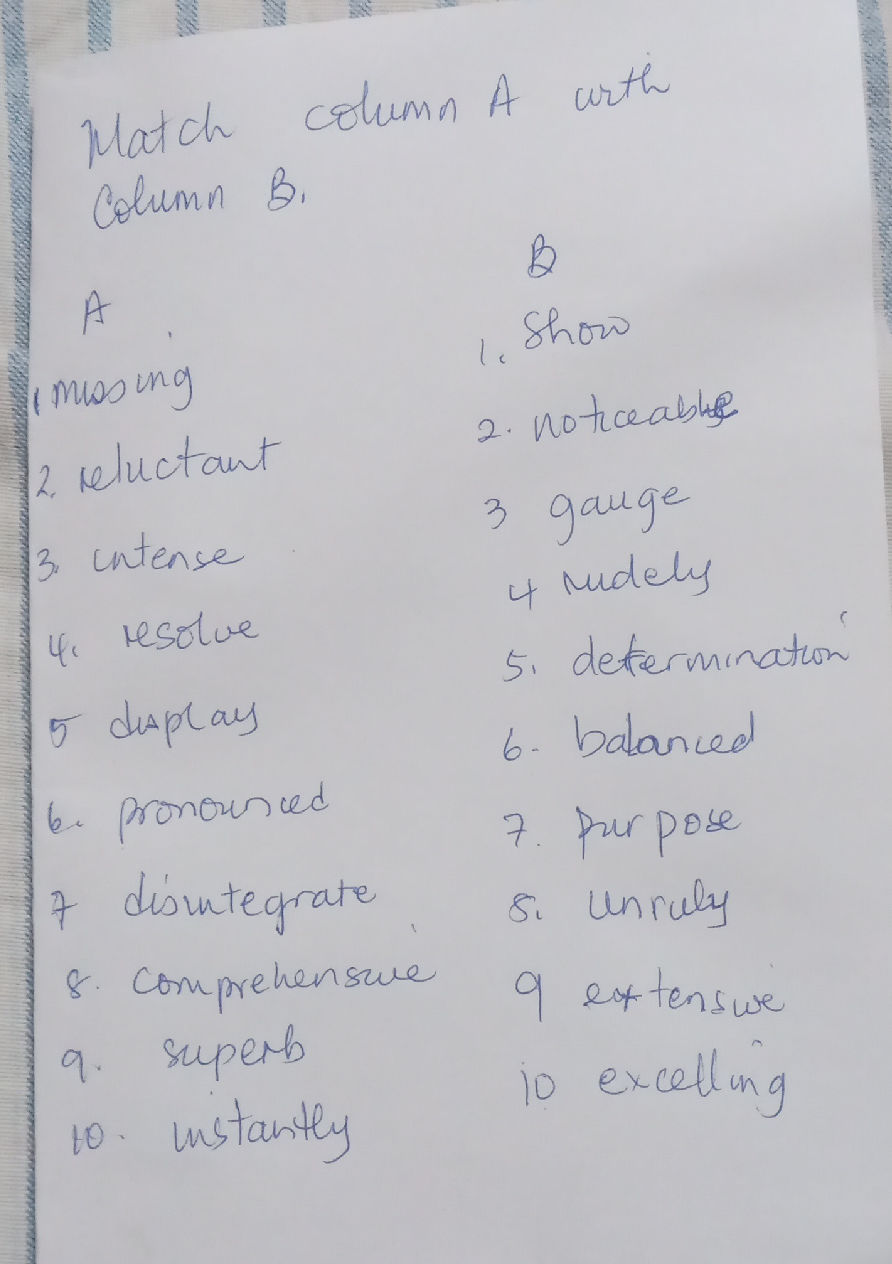 Match column A with
Column B.
A
1. missing
2. reluctant
3. intense
4. resolve
5 display
6. pronounced
7 disintegrate
8. comprehensive
9. superb
10. instantly
B
1. Show
2. noticeable
3 gauge
4 rudely
5. determination
6. balanced
7. purpose
8. unruly
9 extensive
10 excelling